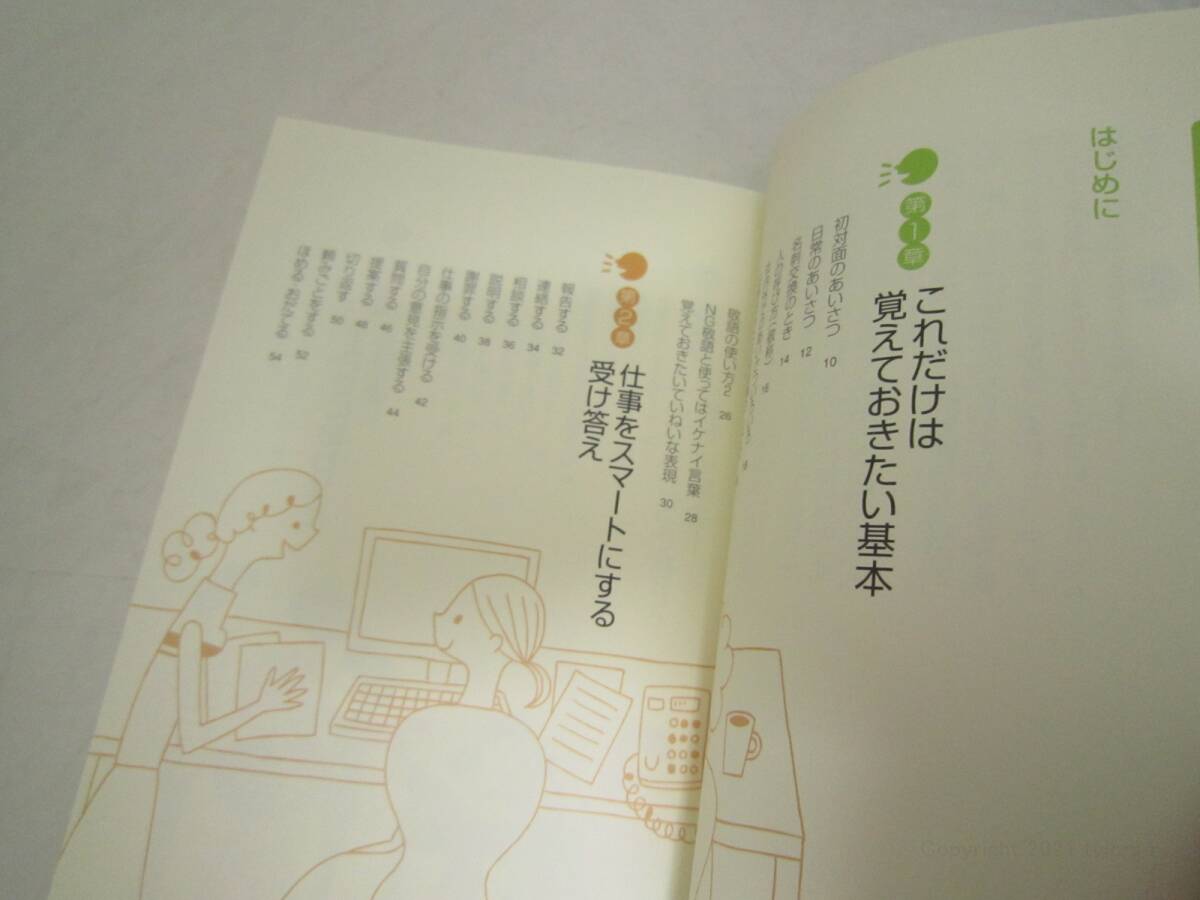 はじめに
第1章
これだけは
覚えておきたい基本
初対面のあいさつ 10
日常のあいさつ 12
名刺交換のとき 14
敬語の使い方2 26
NG敬語と使ってはイケナイ言葉 28
覚えておきたいていねいな表現 30
第2章
仕事をスマートにする
受け答え
報告する 32
連絡する 34
相談する 36
説明する 38
謝罪する 40
仕事の指示を受ける 42
自分の意見を主張する 44
質問する 46
提案する 48
切り返す 50
頼みごとをする 52
ほめる おだてる 54